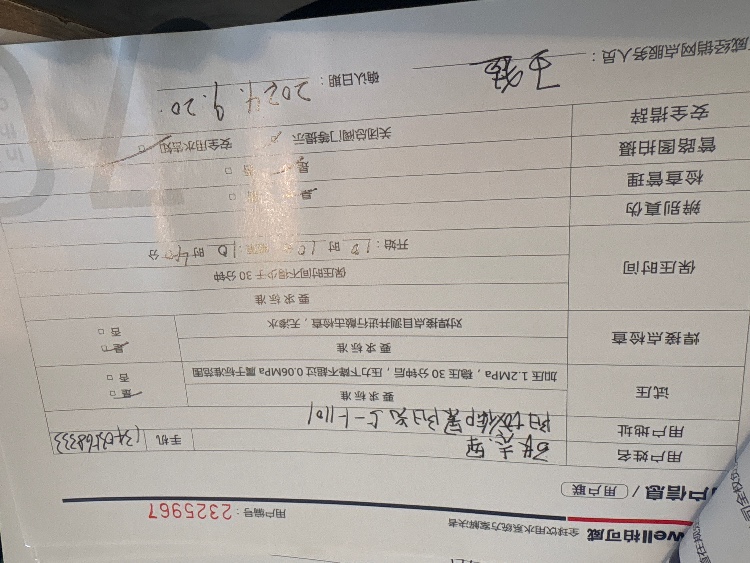 well柏可威 全球饮用水系统方案解决者
用户编号：2325967
户信息 / 用户联
用户姓名
手机 13403568333
用户地址
试压 要求标准 是 否
加压1.2MPa，稳压30分钟后，压力下降不超过0.06MPa属于标准范围
焊接点检查 要求标准 是 否
对焊接点目测并进行敲击检查，无渗水
保压时间 要求标准
保压时间不得少于30分钟
开始：10时10 10时40分
辨别真伪 是
检查管理 是 否
管路图拍摄 关闭总阀门等提示 安全用水告知
安全措辞
威经销网点服务人员：
确认日期：2024.9.20.